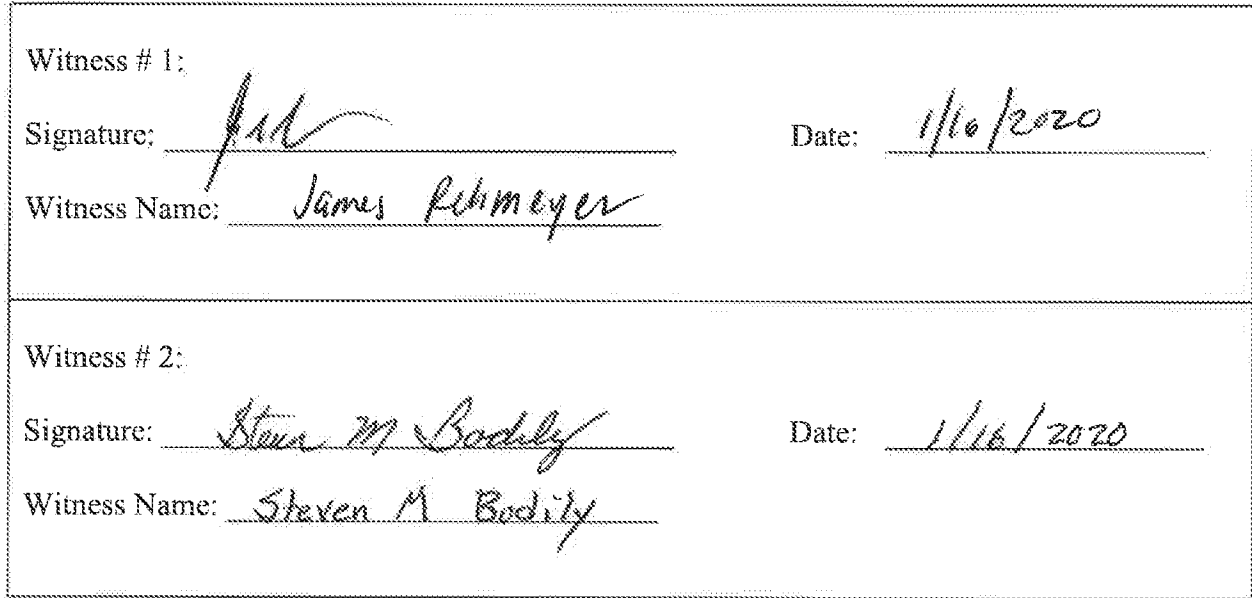 Witness # 1:
Signature: Date: 1/16/2020
Witness Name: James Rehmeyer
Witness # 2:
Signature: Steven M Bodily Date: 1/16/2020
Witness Name: Steven M Bodily